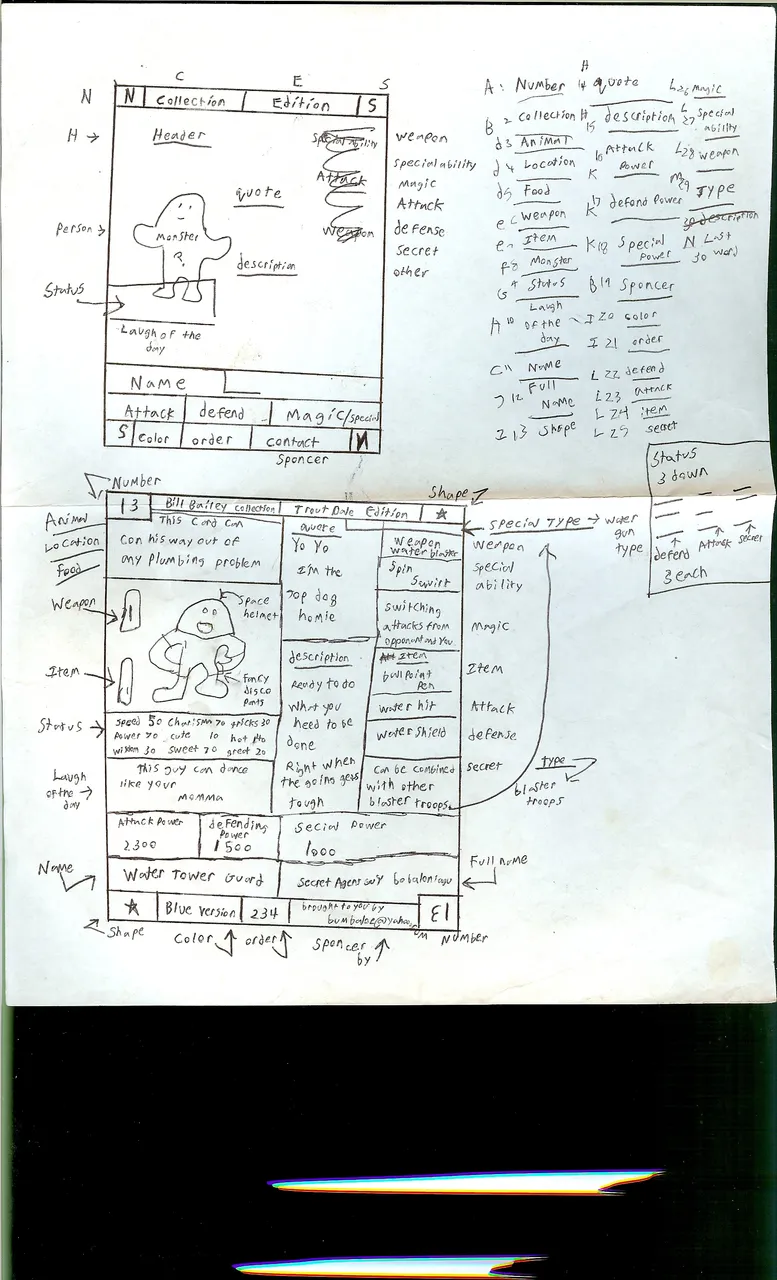 C E S
N
N Collection Edition S
H → Header
Special ability
Attack
Weapon
quote
Person →
Monster
description
Status
Laugh of the
day
Name
Attack defend Magic/special
S color order contact N
Sponcer
weapon
special ability
Magic
Attack
defense
secret
other
A: Number
B 2 collection
d3 Animal
d4 Location
d5 Food
e 6 weapon
e 7 Item
F8 Monster
G 9 Status
H 10 Laugh
of the
day
C 11 Name
J 12 Full
Name
I 13 Shape
H
14 quote
H 15 description
16 Attack
K Power
K 17 defend Power
K 18 Special
Power
B 19 Sponcer
I 20 color
I 21 order
L 22 defend
L 23 attack
L 24 item
L 25 secret
L 26 Magic
L 27 Special
ability
L28 weapon
M 29 Type
30 description
N Last
30 word
Status
3 down
defend Attack secret
3 each
Number
Shape
13 Bill Bailey collection Trout Dale Edition
Animal
Location
Food
This Card Can
Con his way out of
any Plumbing problem
Weapon →
Item →
Space
helmet
Fancy
disco
Pants
Status →
Speed 50 Charisma 70 tricks 30
Power 70 cute 10 hot 110
wisdom 30 sweet 70 great 20
Laugh
of the →
day
This guy can dance
like your
momma
quote
Yo Yo
I'm the
Top dog
homie
description
Ready to do
What you
need to be
done
Right when
the going gets
tough
Weapon
water blaster
Spin
Squirt
switching
attacks from
opponent and you
Att Item
ball point
Pen
water hit
Water Shield
Can be combined
with other
blaster troops
← Special Type → water
gun
type
weapon
special
ability
Magic
Item
Attack
defense
secret
Type
blaster
troops
Attack Power
2300
defending
Power
1500
Secial Power
1000
Name
Water Tower Guard
Secret Agent Guy bobaloniagu
Full name
Blue version 234 brought to you by
bumbajoe@yahoo.com
13
Shape
color order Sponcer
by
Number